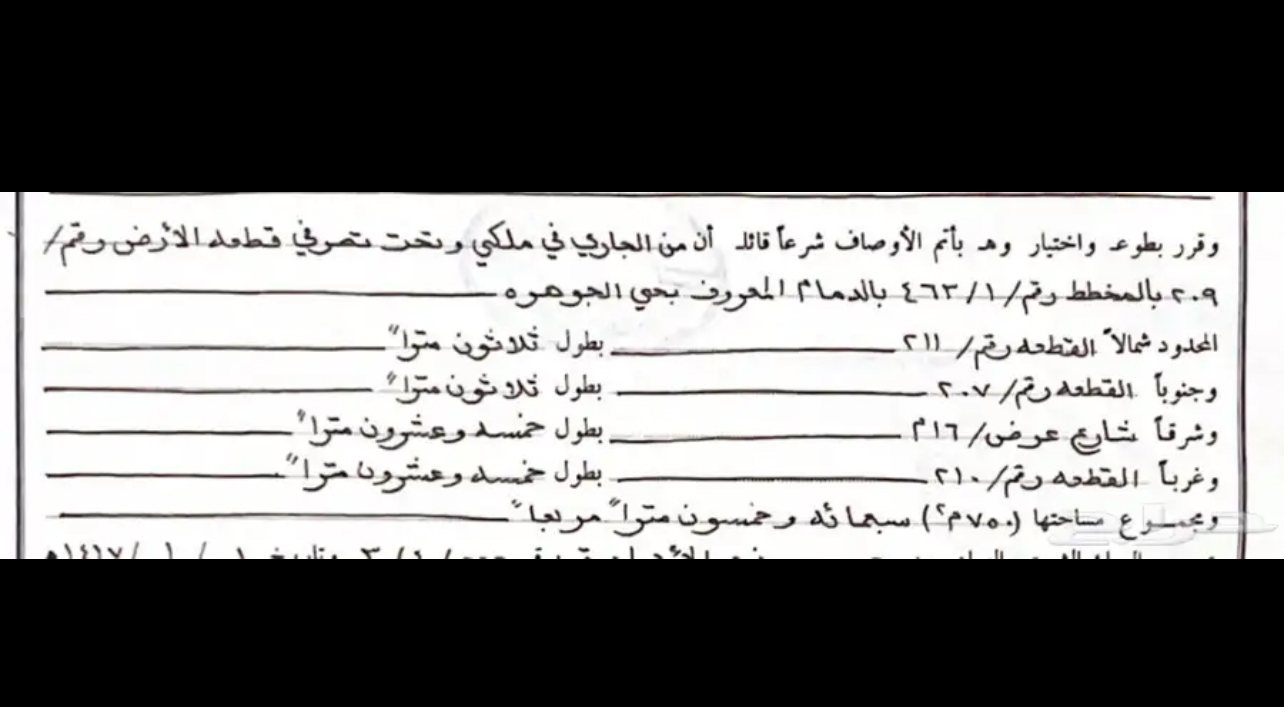 وقرر بطوعه واختيار وهو بأتم الأوصاف شرعاً قائلا أن من الجاري في ملكي وتحت تصرفي قطعه الأرض رقم/
٢٠٩ بالمخطط رقم/ ٤٦٣/١ بالدمام المعروف بحي الجوهره
المحدود شمالاً القطعه رقم/ ٢١١ بطول ثلاثون متراً
وجنوباً القطعه رقم/ ٢٠٧ بطول ثلاثون متراً
وشرقاً شارع عرض/ ١٦م بطول خمسه وعشرون متراً
وغرباً القطعه رقم/ ٢١٠ بطول خمسه وعشرون متراً
ومجموع مساحتها (٧٥٠م٢) سبعمائه وخمسون متراً مربعاً
حراج